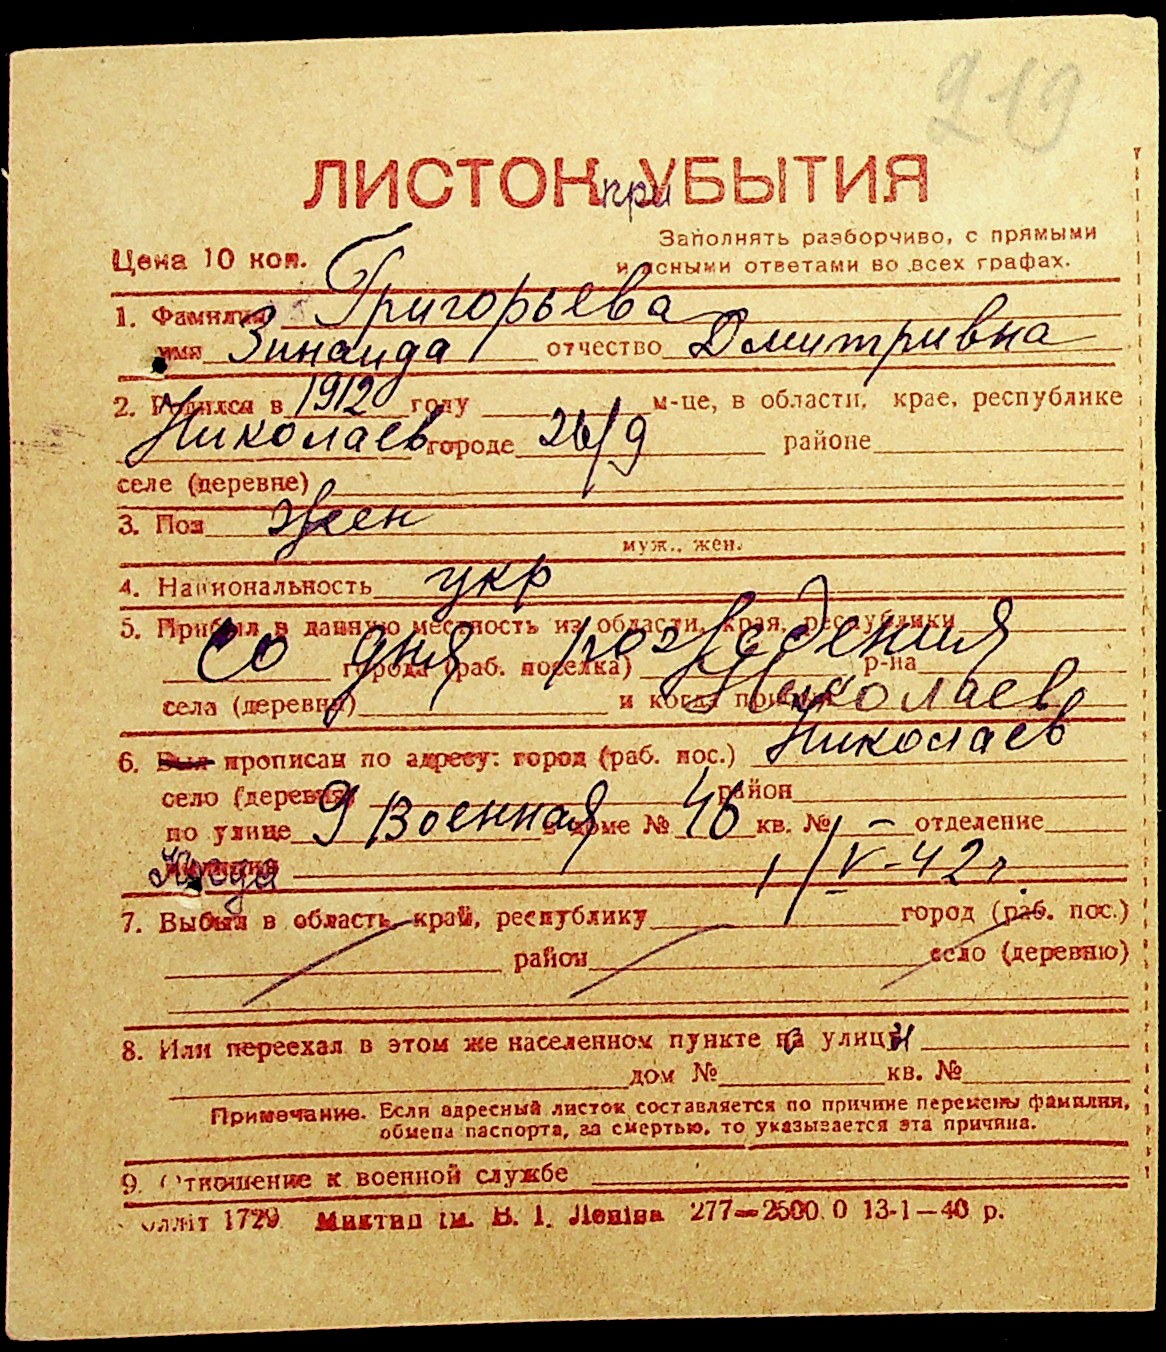 219
ЛИСТОК при УБЫТИЯ
Заполнять разборчиво, с прямыми
Цена 10 коп. и ясными ответами во всех графах.
1. Фамилия Григорьева
имя Зинаида отчество Дмитривна
2. Родился в 1912 году м-це, в области, крае, республике
Николаев городе 26/9 районе
селе (деревне)
3. Пол жен
муж., жен.
4. Национальность укр
5. Прибыл в данную местность из области, края, республики
со дня рождения
города (раб. поселка) р-на
села (деревни) и когда прибыл Николаев
6. Был прописан по адресу: город (раб. пос.) Николаев
село (деревня) район
по улице 9 Военная в доме № 46 кв. № – отделение
Когда 1/V-42г.
7. Выбыл в область, край, республику город (раб. пос.)
район село (деревню)
8. Или переехал в этом же населенном пункте с улицы
дом № кв. №
Примечание. Если адресный листок составляется по причине перемены фамилии,
обмена паспорта, за смертью, то указывается эта причина.
9. Отношение к военной службе
1729 Миктип ім. В. І. Леніна 277—2500.0 13-1—40 р.